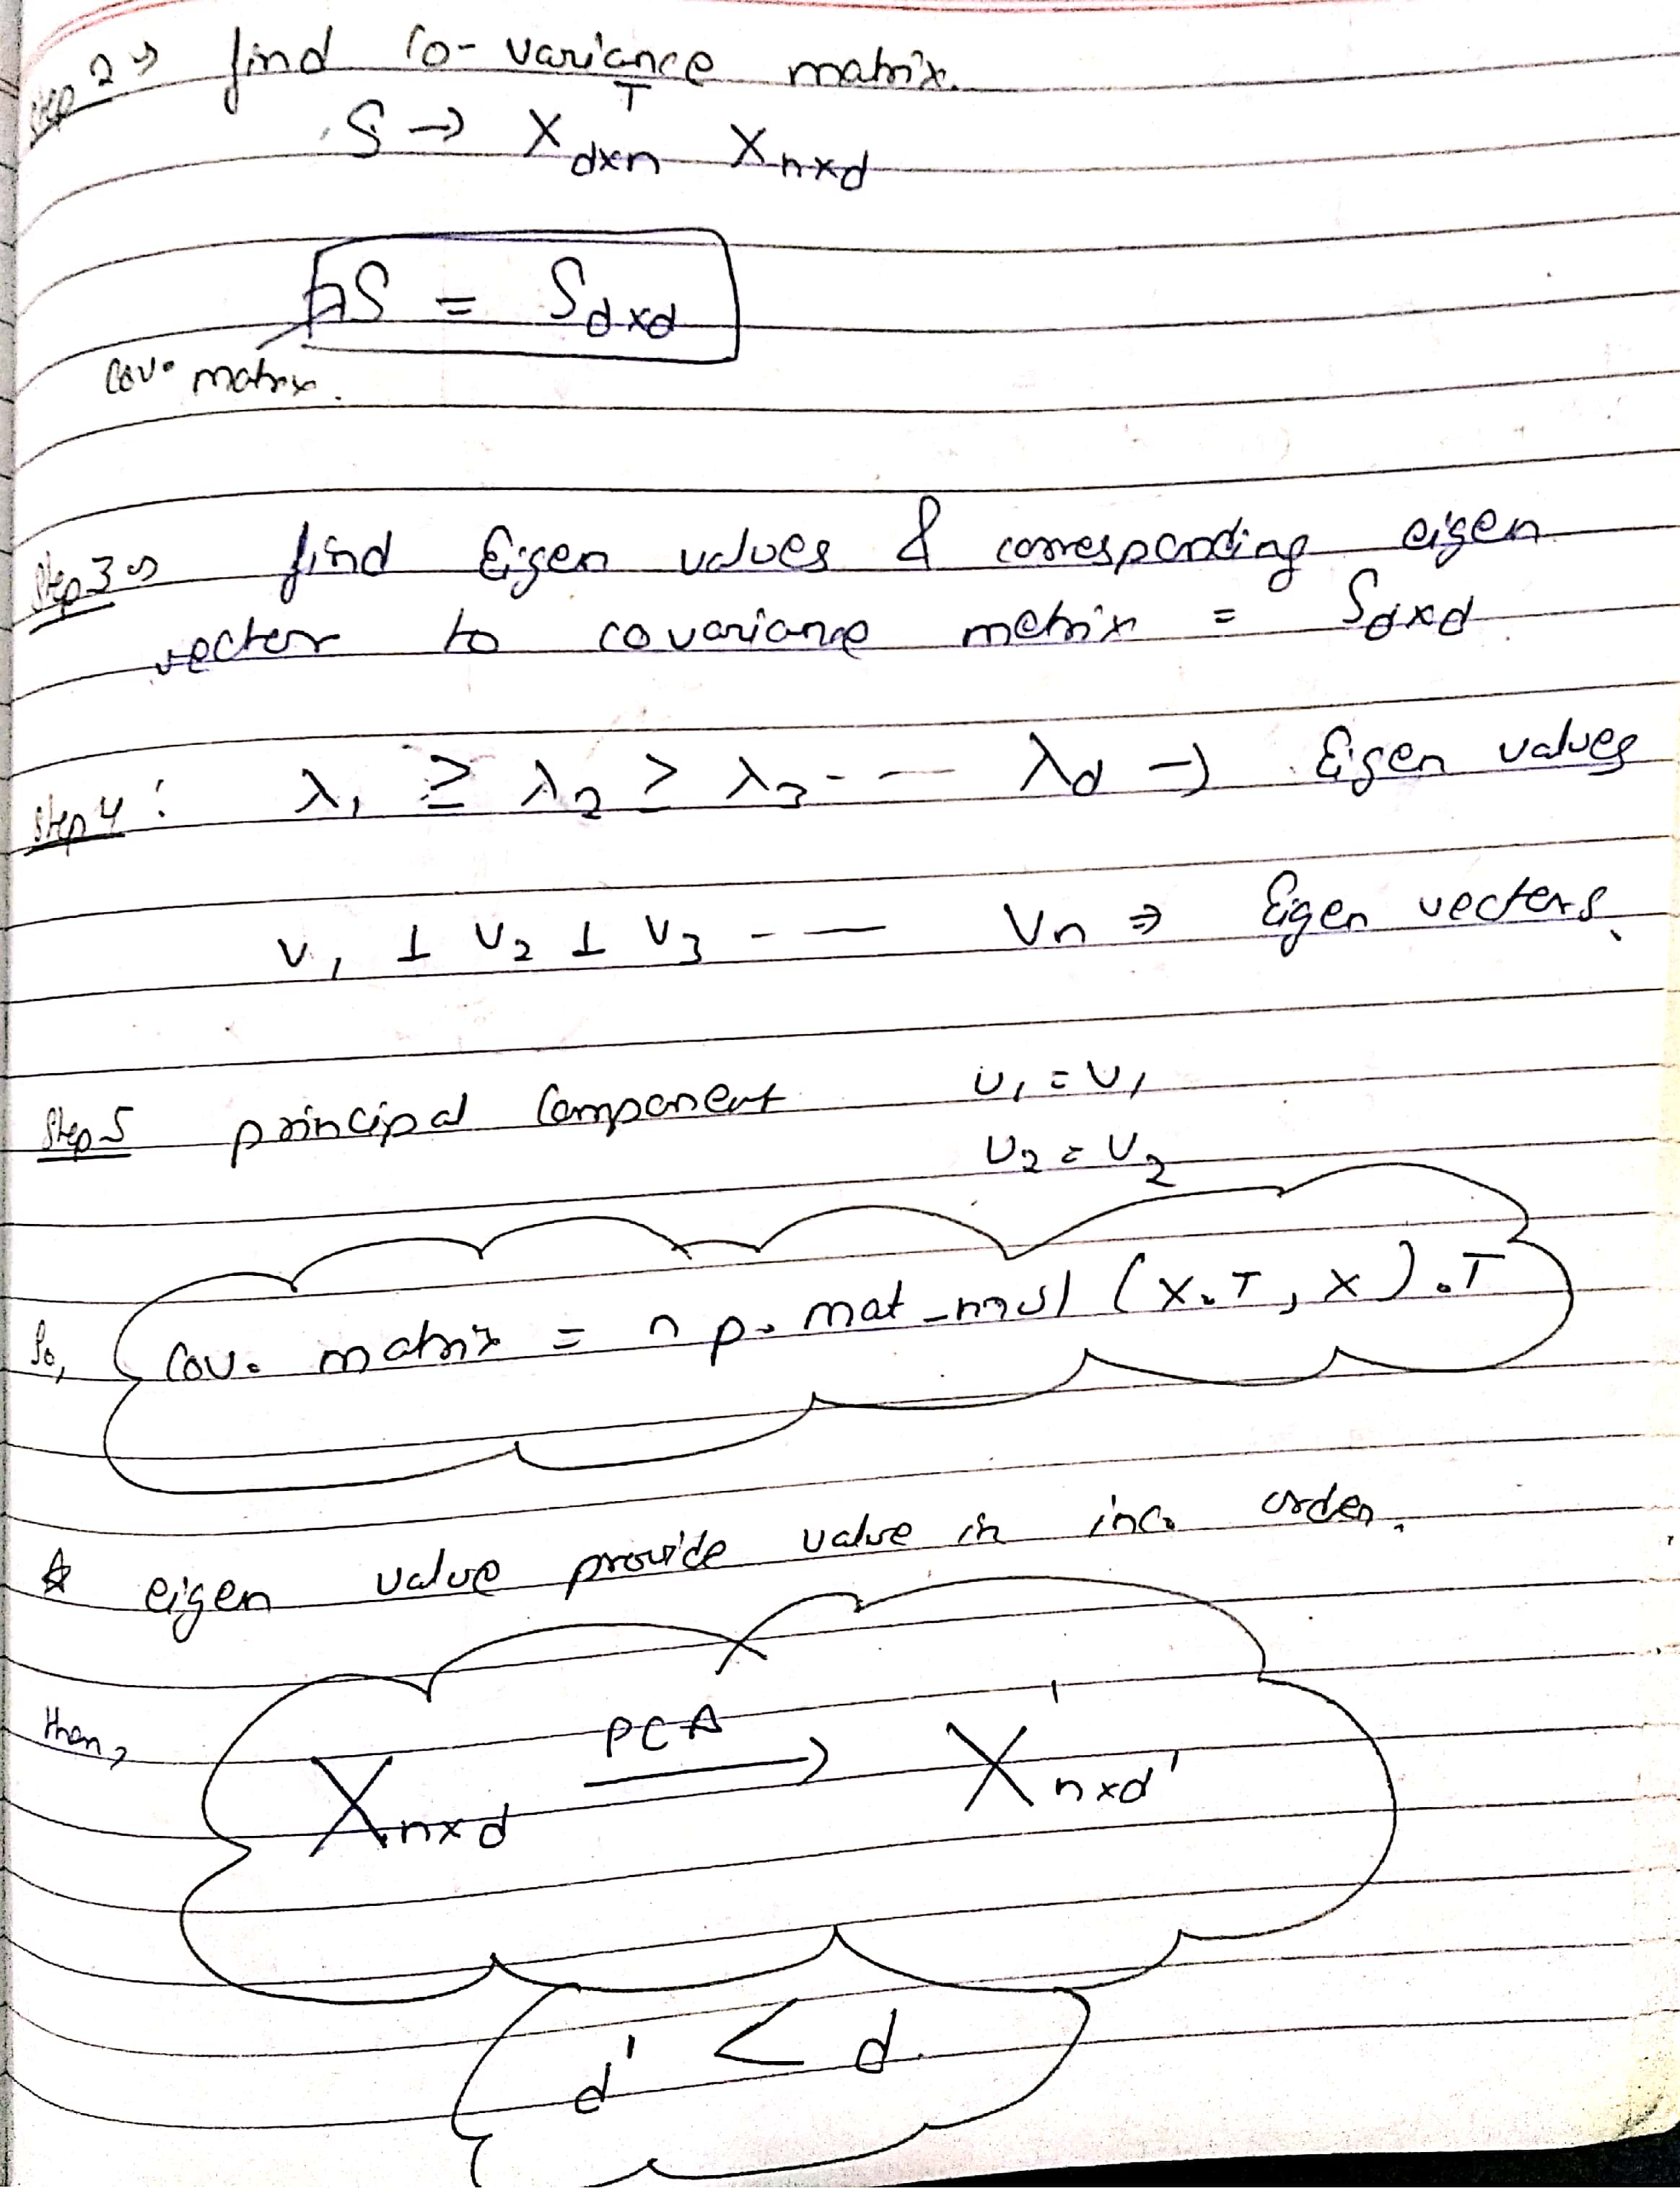 Step 2 => find Co-variance matrix.
S → X^T_{d×n} X_{n×d}
S = S_{d×d}
Cov. matrix.
Step 3 => find Eigen values & corresponding eigen
vector to covariance matrix = S_{d×d}.
Step 4 : λ₁ ≥ λ₂ > λ₃ - - — λd → Eigen values
V₁ ⊥ V₂ ⊥ V₃ - — Vn ⇒ Eigen vectors.
Step 5 principal Component U₁ = V₁
U₂ = V₂
So, Cov. matrix = np.mat_mul (X.T, X).T
☆ eigen value provide value in inc. order.
then, X_{n×d} PCA → X'_{n×d'}
d' < d.